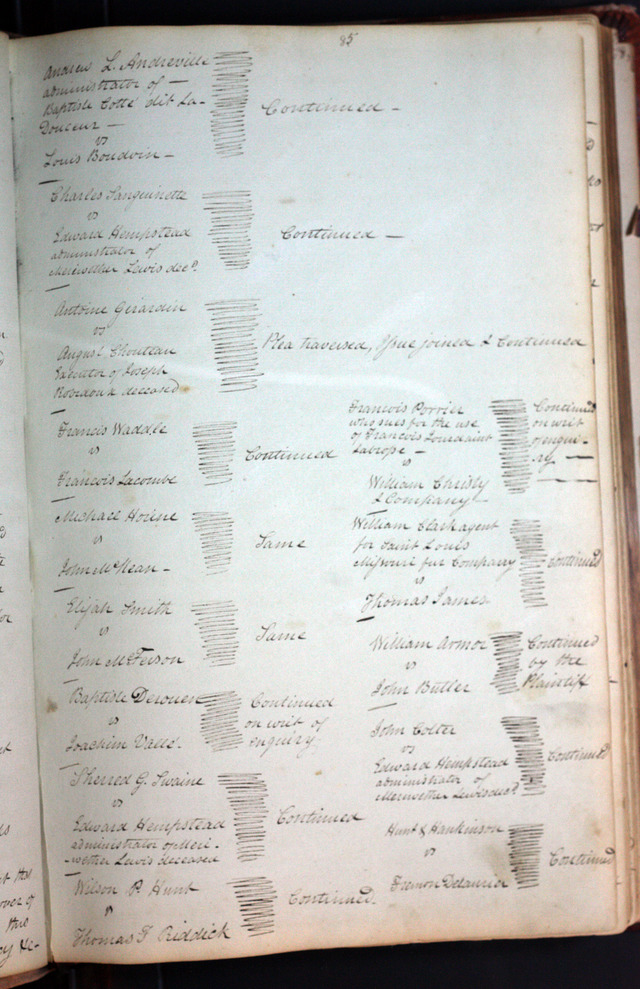 85
Andrew L. Andreville
administrator of —
Baptiste Cotté dit La-
Douceur —
vs
Louis Boudoin —
Continued —
Charles Sanguinette
vs
Edward Hempstead
administrator of
Meriwether Lewis decd.
Continued —
Antoine Girardin
vs
August Chouteau
Executor of Joseph
Robidoux deceased
Plea traversed, Issue joined & Continued
Francis Waddle
vs
Francois Lacombe
Continued
Michael Horine
vs
John McKean —
Same
Elijah Smith
vs
John McFerson
Same
Baptiste Derouen
vs
Joachim Valls.
Continued
on writ of
enquiry
Sherred G. Swaine
vs
Edward Hempstead
administrator of Meri-
-wether Lewis deceased
Continued
Wilson P. Hunt
vs
Thomas F Riddick
Continued.
Francois Porrier
who sues for the use
of Francois
Labross —
vs
William Christy
& Company —
Continued
on writ
of enqui-
ry —
William Clark agent
for Saint Louis
Missouri fur Company
vs
Thomas James
Continued
William Armor
vs
John Butler
Continued
by the
Plaintiff
John Colter
vs
Edward Hempstead
administrator of
Meriwether Lewis decd.
Continued
Hunt & Hankinson
vs
Fremon Delaurier
Continued